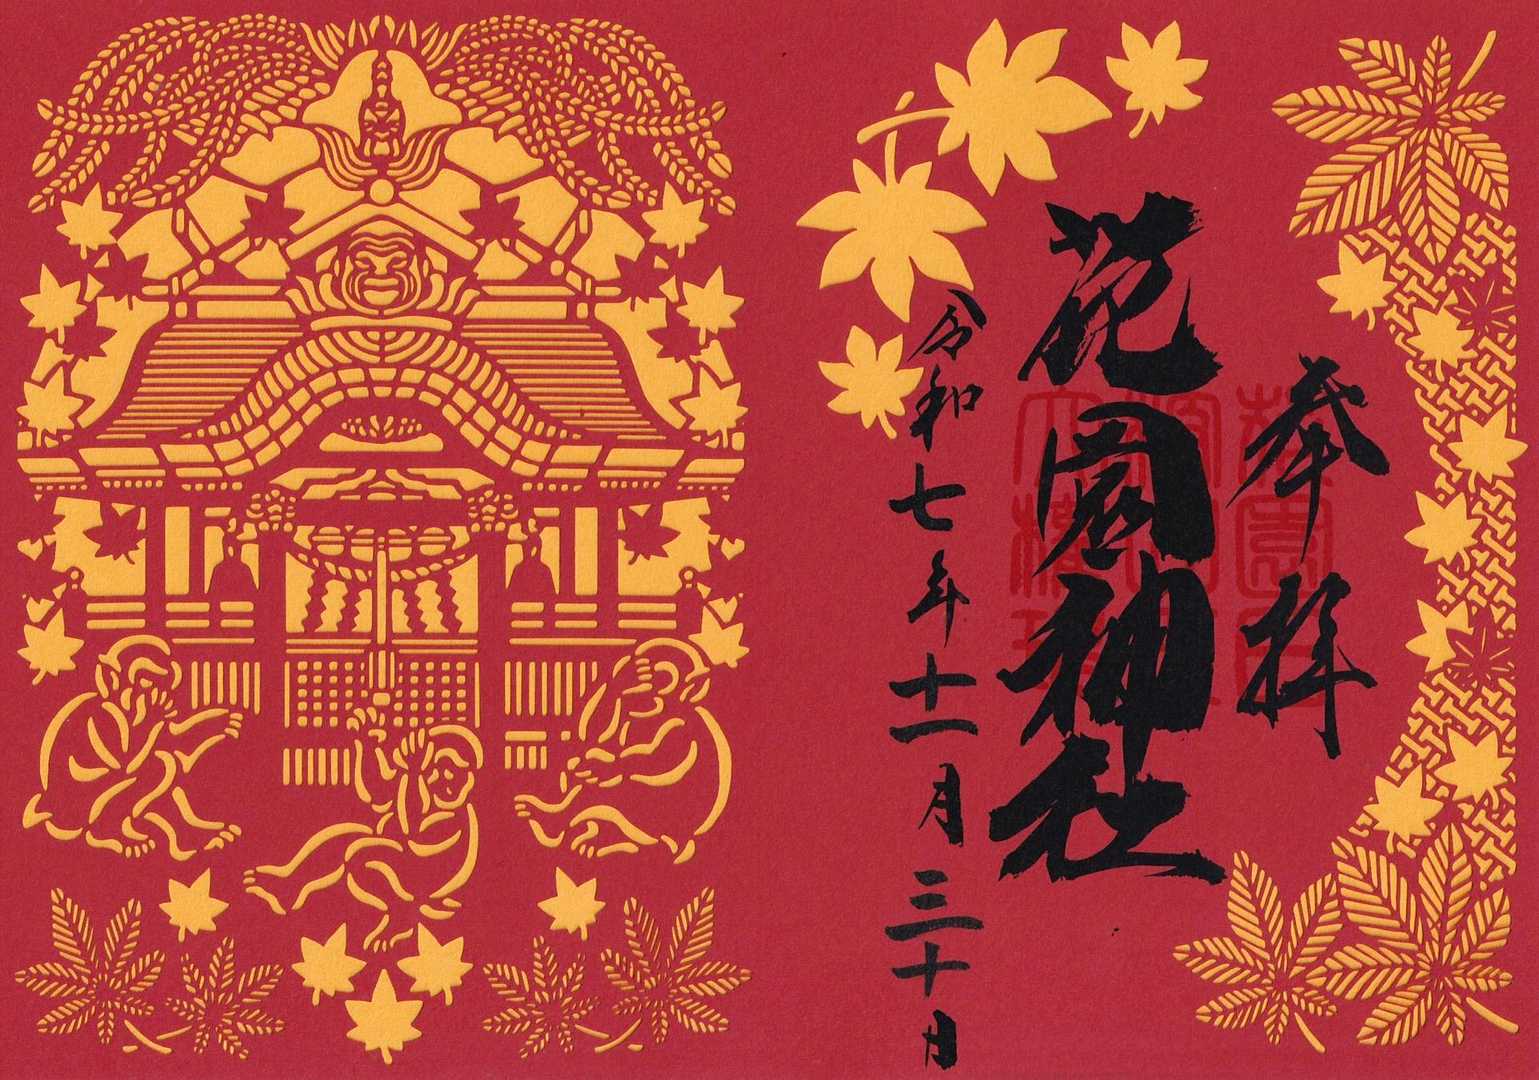 奉拝
花園神社
令和七年十一月三十日